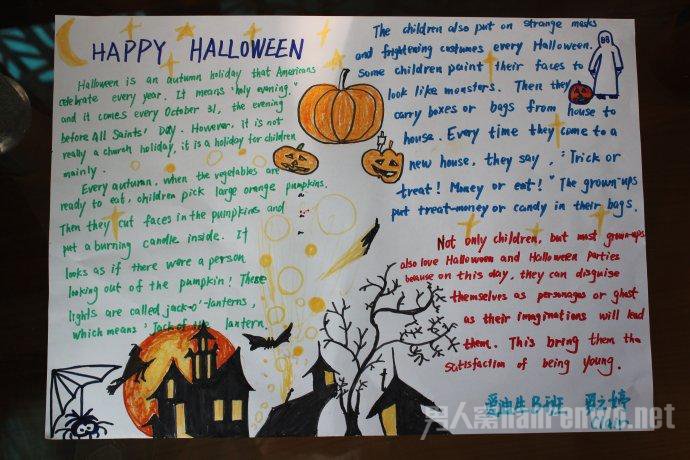 HAPPY HALLOWEEN
Halloween is an autumn holiday that Americans
celebrate every year. It means "holy evening."
and it comes every October 31, the evening
before All Saints' Day. However, it is not
really a church holiday, it is a holiday for children
mainly.
Every autumn, when the vegetables are
ready to eat, children pick large orange pumpkins.
Then they cut faces in the pumpkins and
put a burning candle inside. It
looks as if there were a person
looking out of the pumpkin! These
lights are called jack-o'-lanterns,
which means "Jack of the lantern.
The children also put on strange masks
and frightening costumes every Halloween.
Some children paint their faces to
look like monsters. Then they
carry boxes or bags from house to
house. Every time they come to a
new house, they say, "Trick or
treat! Money or eat!" The grown-ups
put treat-money or candy in their bags.
Not only children, but most grown-ups
also love Halloween and Halloween parties
because on this day, they can disguise
themselves as personages or ghost
as their imaginations will lead
them. This bring them the
satisfaction of being young.
B班
男人窝 nanrenwo.net